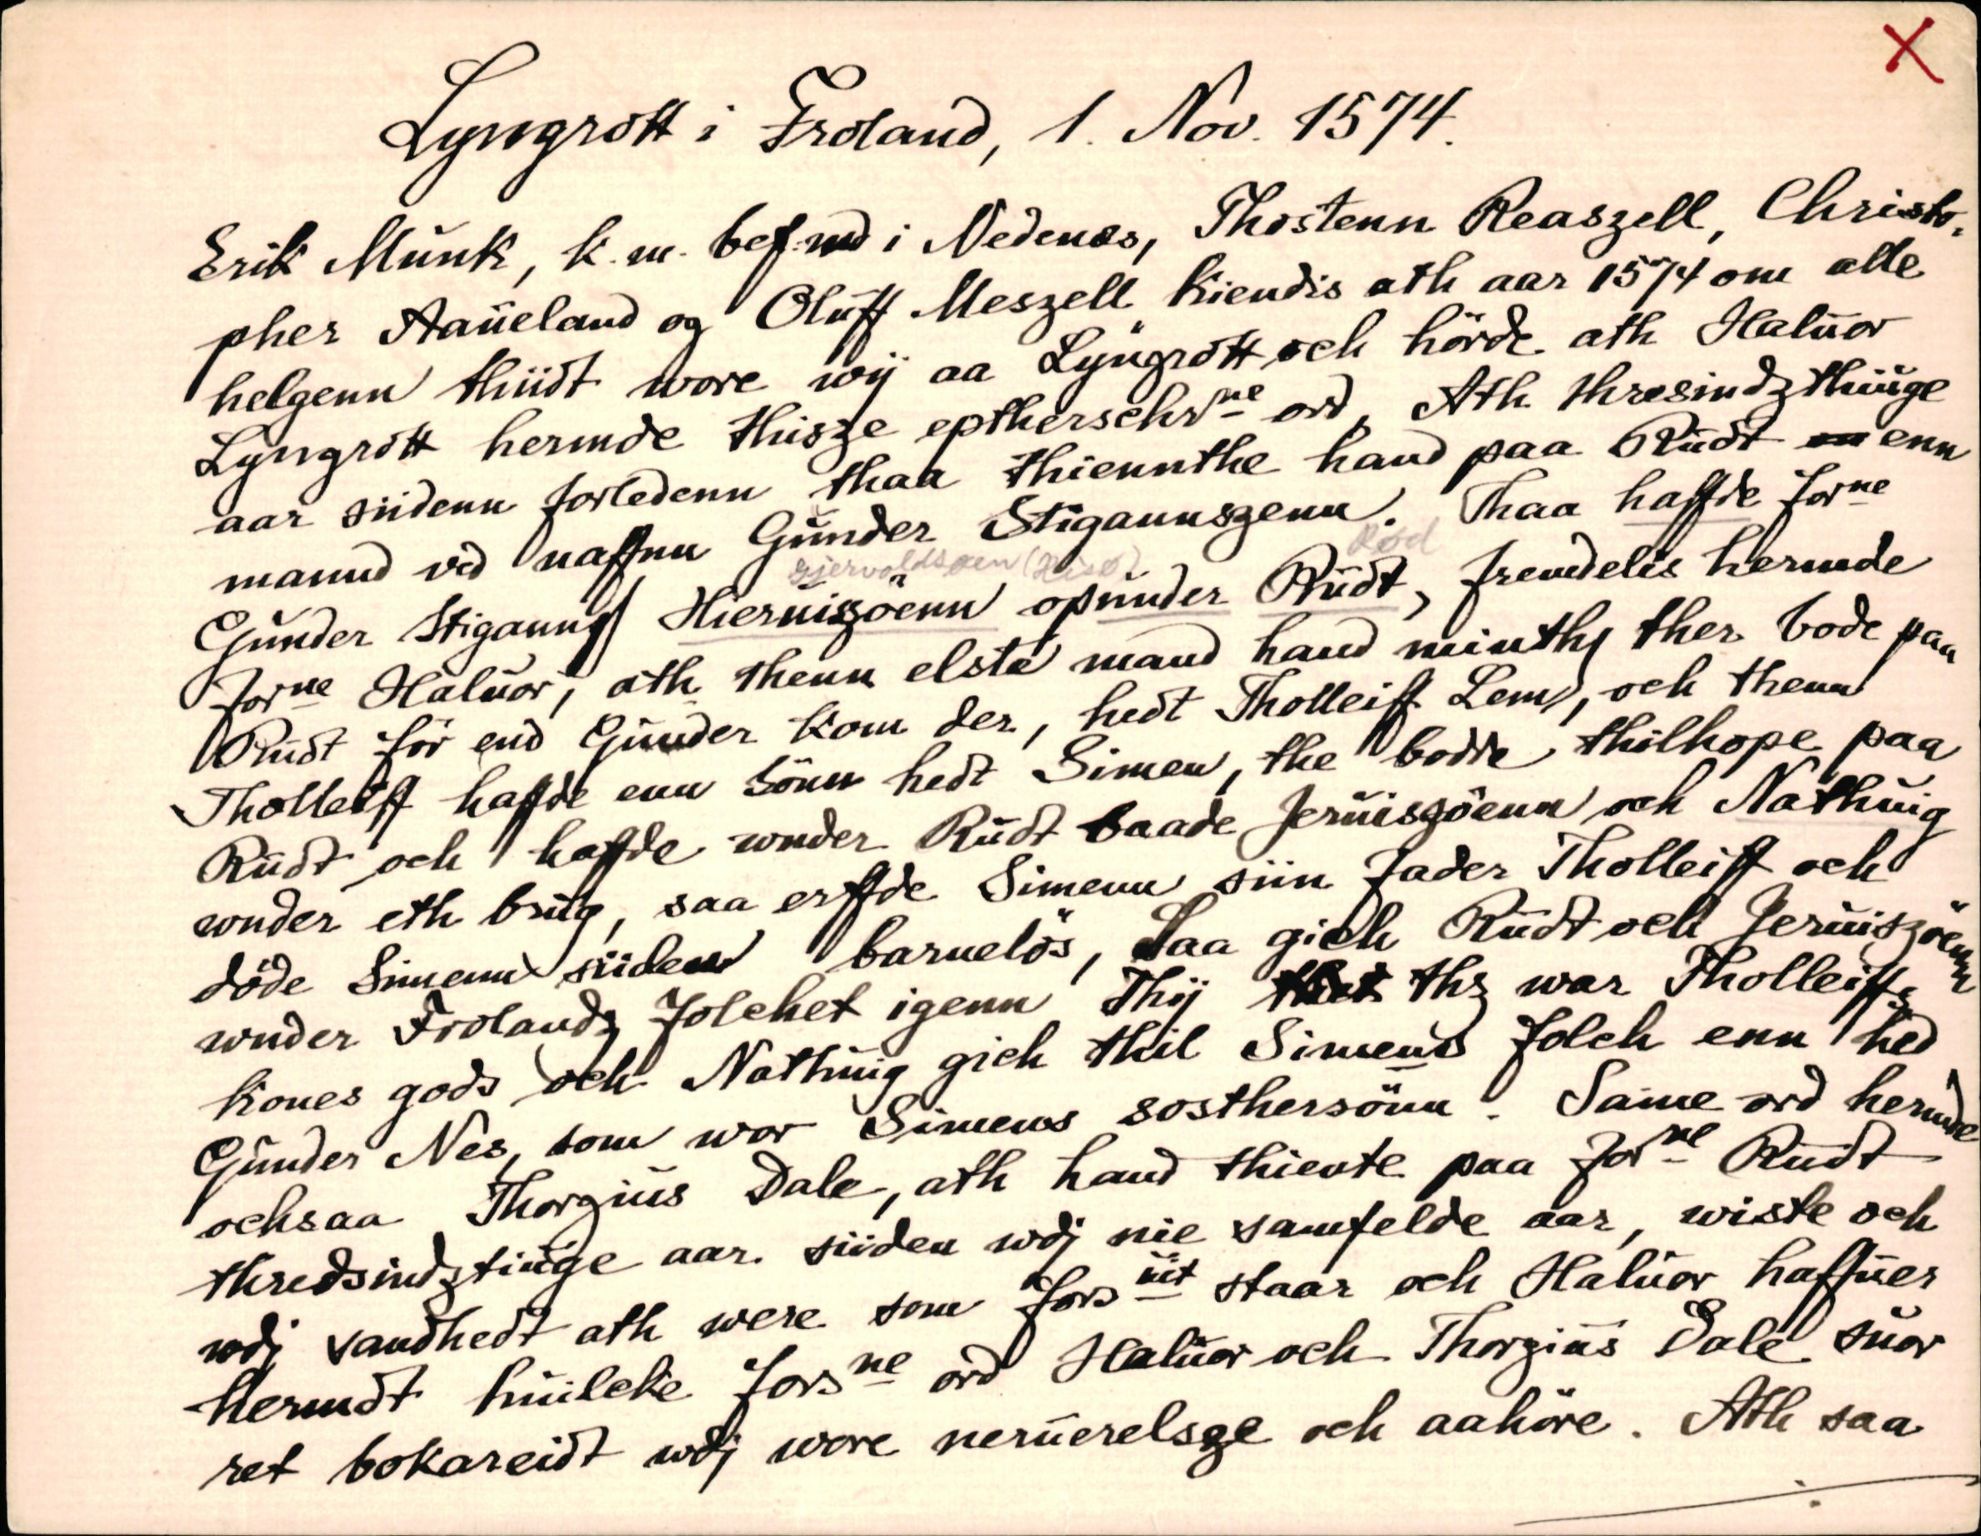 X
Lyngrott i Froland, 1. Nov. 1574.
Erik Munk, k. m. bef.md i Nedenes, Thostenn Reaszell, Christo-
pher Aaueland og Oluff Meszell kiendis ath aar 1574 om alle
helgenn thiidt wore wij aa Lyngrott och hörde ath Haluor
Lyngrott hermde thisze eptherschrne ord, Ath thresindzthiuge
aar siidenn forledenn thaa thiennthe hand paa Rudt enn
mannd ved naffnn Gunder Stigannszenn. Thaa haffde forne
Gjervoldsøen (Hisø) Rød
Gunder Stiganns Hieruiszöenn opunder Rudt, fremdelis hermde
forne Haluor, ath thenn elste mand hand minthes ther bode paa
Rudt för end Gunder kom der, hedt Tholleiff Lem, och thenn
Tholleiff haffde enn sönn hedt Simen, the bodde thilhope paa
Rudt och haffde wnder Rudt baade Jeruiszöenn och Nathuig
wnder eth brug, saa erffde Simenn siin fader Tholleiff och
döde Simenn siiden barnelös, Saa gich Rudt och Jeruiszöenn
wnder Frolandz folchet igenn Thij thz war Tholleiffs
kones gods och Nathuig gich thil Simens folch enn hed
Gunder Nes, som war Simens sosthersönn. Same ord hermde
ochsaa Thorgius Dale, ath hand thiente paa forne Rudt
thredsindztiuge aar. siiden wdj nie samfelde aar, wiste och
wdj sandhedt ath were som forsuit staar och Haluor haffuer
hermdt huilcke forsne ord Haluor och Thorgius Dale suor
ret bokareidt wdj wore neruerelsze och aahöre. Ath saa